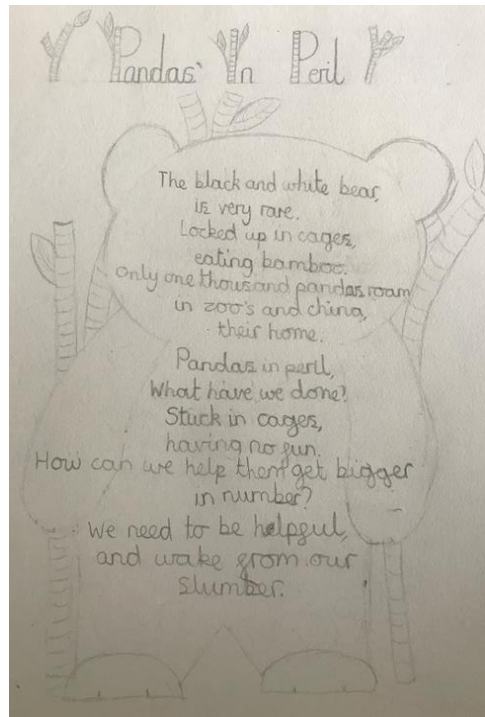 Pandas' In Peril
The black and white bear,
is very rare.
Locked up in cages,
eating bamboo.
Only one thousand pandas roam
in zoo's and china,
their home.
Pandas in peril,
What have we done?
Stuck in cages,
having no fun.
How can we help them get bigger
in number?
We need to be helpful,
and wake from our
slumber.